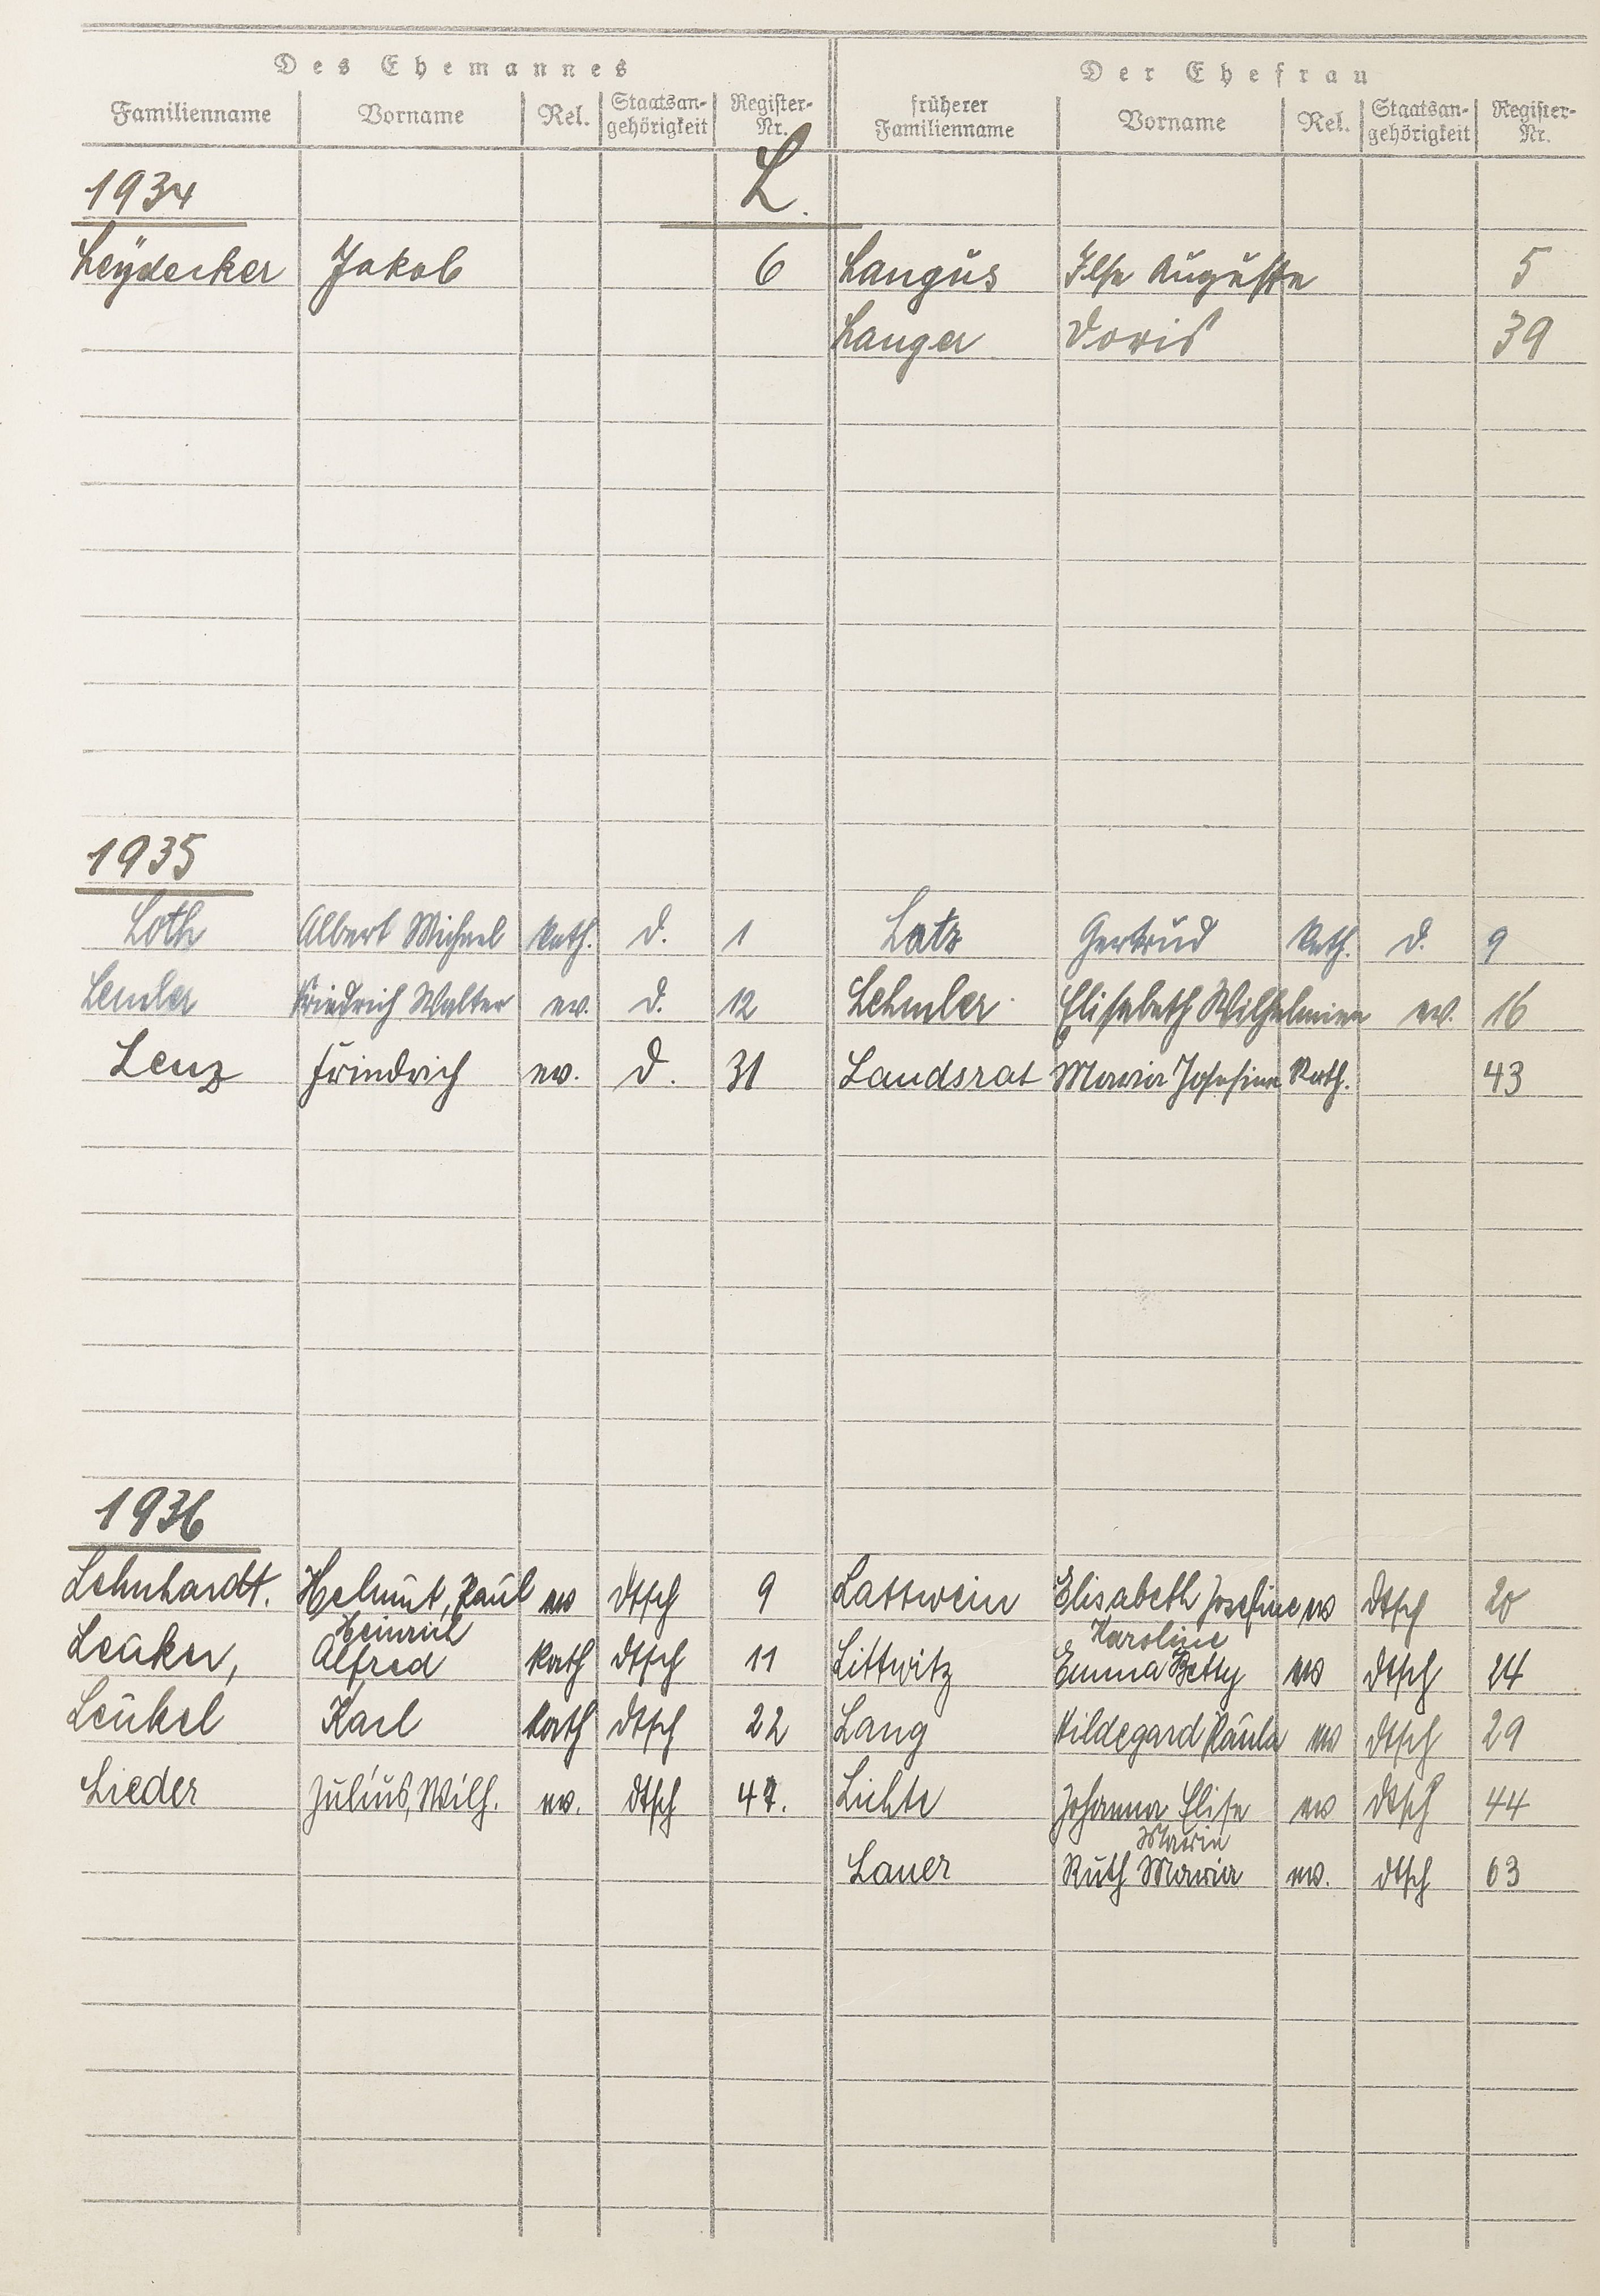 Des Ehemannes Der Ehefrau
Familienname Vorname Rel. Staatsan-gehörigkeit Register-Nr. früherer Familienname Vorname Rel. Staatsan-gehörigkeit Register-Nr.
L.
1934
Leydecker Jakob 6 Langus Ilse Auguste 5
Langer Doris 39
1935
Loth Albert Michael kath. d. 1 Latz Gertrud kath. d. 9
Lemler Friedrich Walter ev. d. 12 Lehmler Elisabeth Wilhelmine ev. 16
Lenz Friedrich ev. d. 31 Landsrat Maria Josefine Kath. 43
1936
Lehnhardt. Helmut, Paul ev dtsch 9 Lattwein Elisabeth Josefine ev dtsch 20
Heinrich Karoline
Alfred kath dtsch 11 Littwitz Emma Betty ev dtsch 24
Leukel Karl kath dtsch 22 Lang Hildegard Paula ev dtsch 29
Lieder Julius, Wilh. ev. dtsch 47. Lichte Johanna Elise ev dtsch 44
Maria
Lauer Ruth Maria ev. dtsch 63